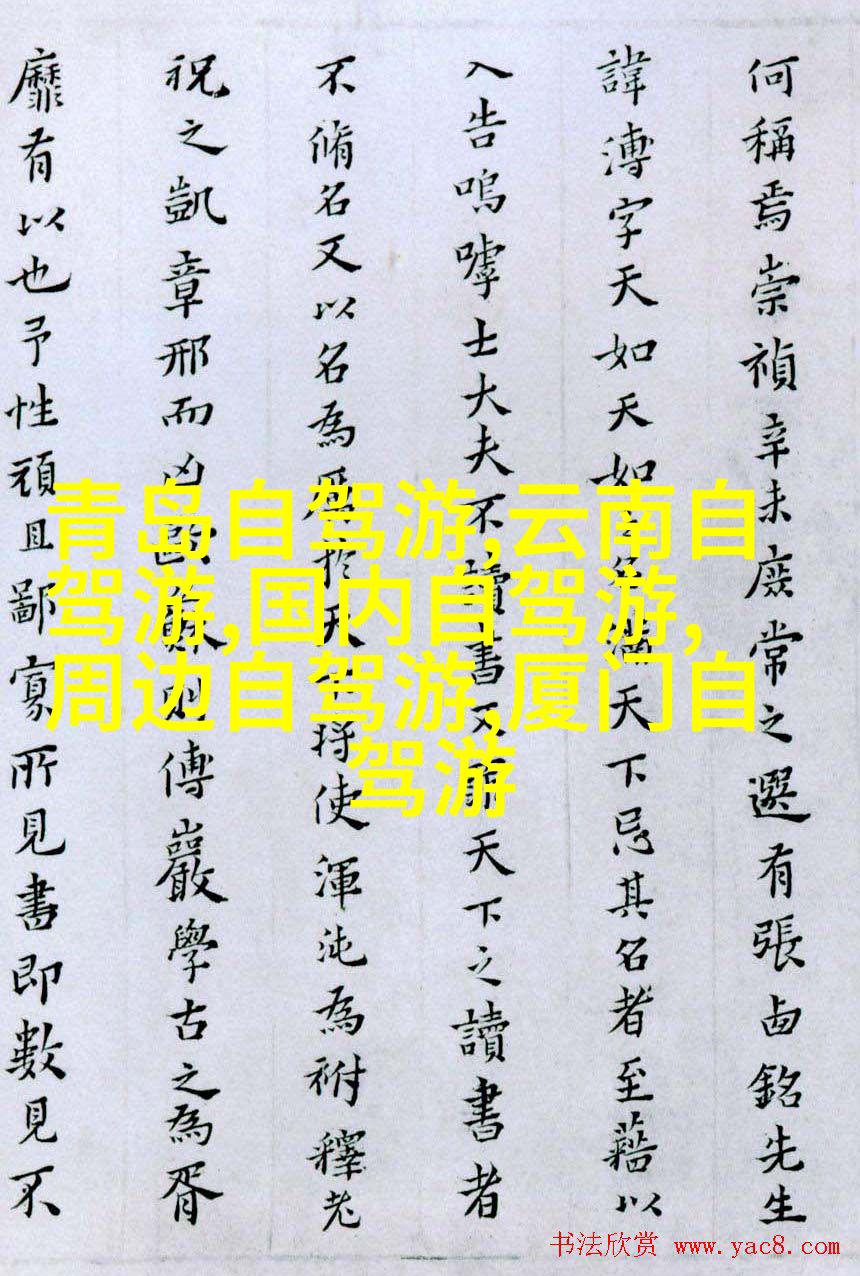 何稱焉崇禎辛未廷常之選有張卣銘先生
諱溥字天如天如之名滿天下忌其名者至藉以
入告嗚嘑士大夫不讀書又罪天下之讀書者
不脩名又以名為於天將使渾沌為祔釋老
祝之凱章邢而凶則傅巖學古之為胥
靡有以也予性頑且鄙寡所見書即數見不
青岛自驾游,云南自
驾游,国内自驾游,
周边自驾游,厦门自
驾游
书法欣赏 www.yac8.com